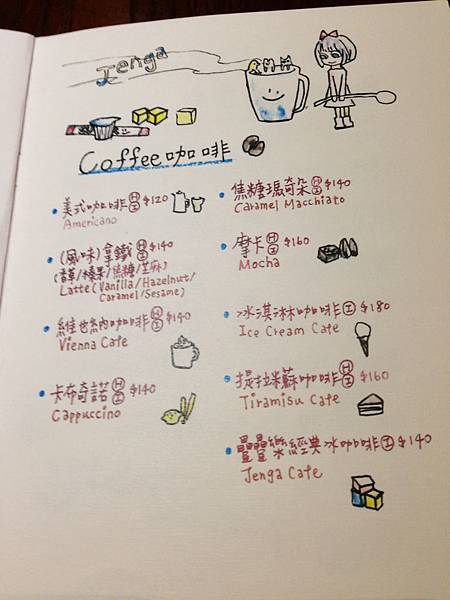 Jenga
Coffee咖啡
美式咖啡ⒽⒾ$120
Americano
(風味)拿鐵ⒽⒾ$140
(香草/榛果/焦糖/芝麻)
Latte(Vanilla/Hazelnut/
Caramel/Sesame)
維也納咖啡ⒽⒾ$140
Vienna Cafe
卡布奇諾ⒽⒾ$140
Cappuccino
焦糖瑪奇朵ⒽⒾ$140
Caramel Macchiato
摩卡ⒽⒾ$160
Mocha
冰淇淋咖啡Ⓘ$180
Ice Cream Cafe
提拉米蘇咖啡ⒽⒾ$160
Tiramisu Cafe
疊疊樂經典冰咖啡Ⓘ$140
Jenga Cafe